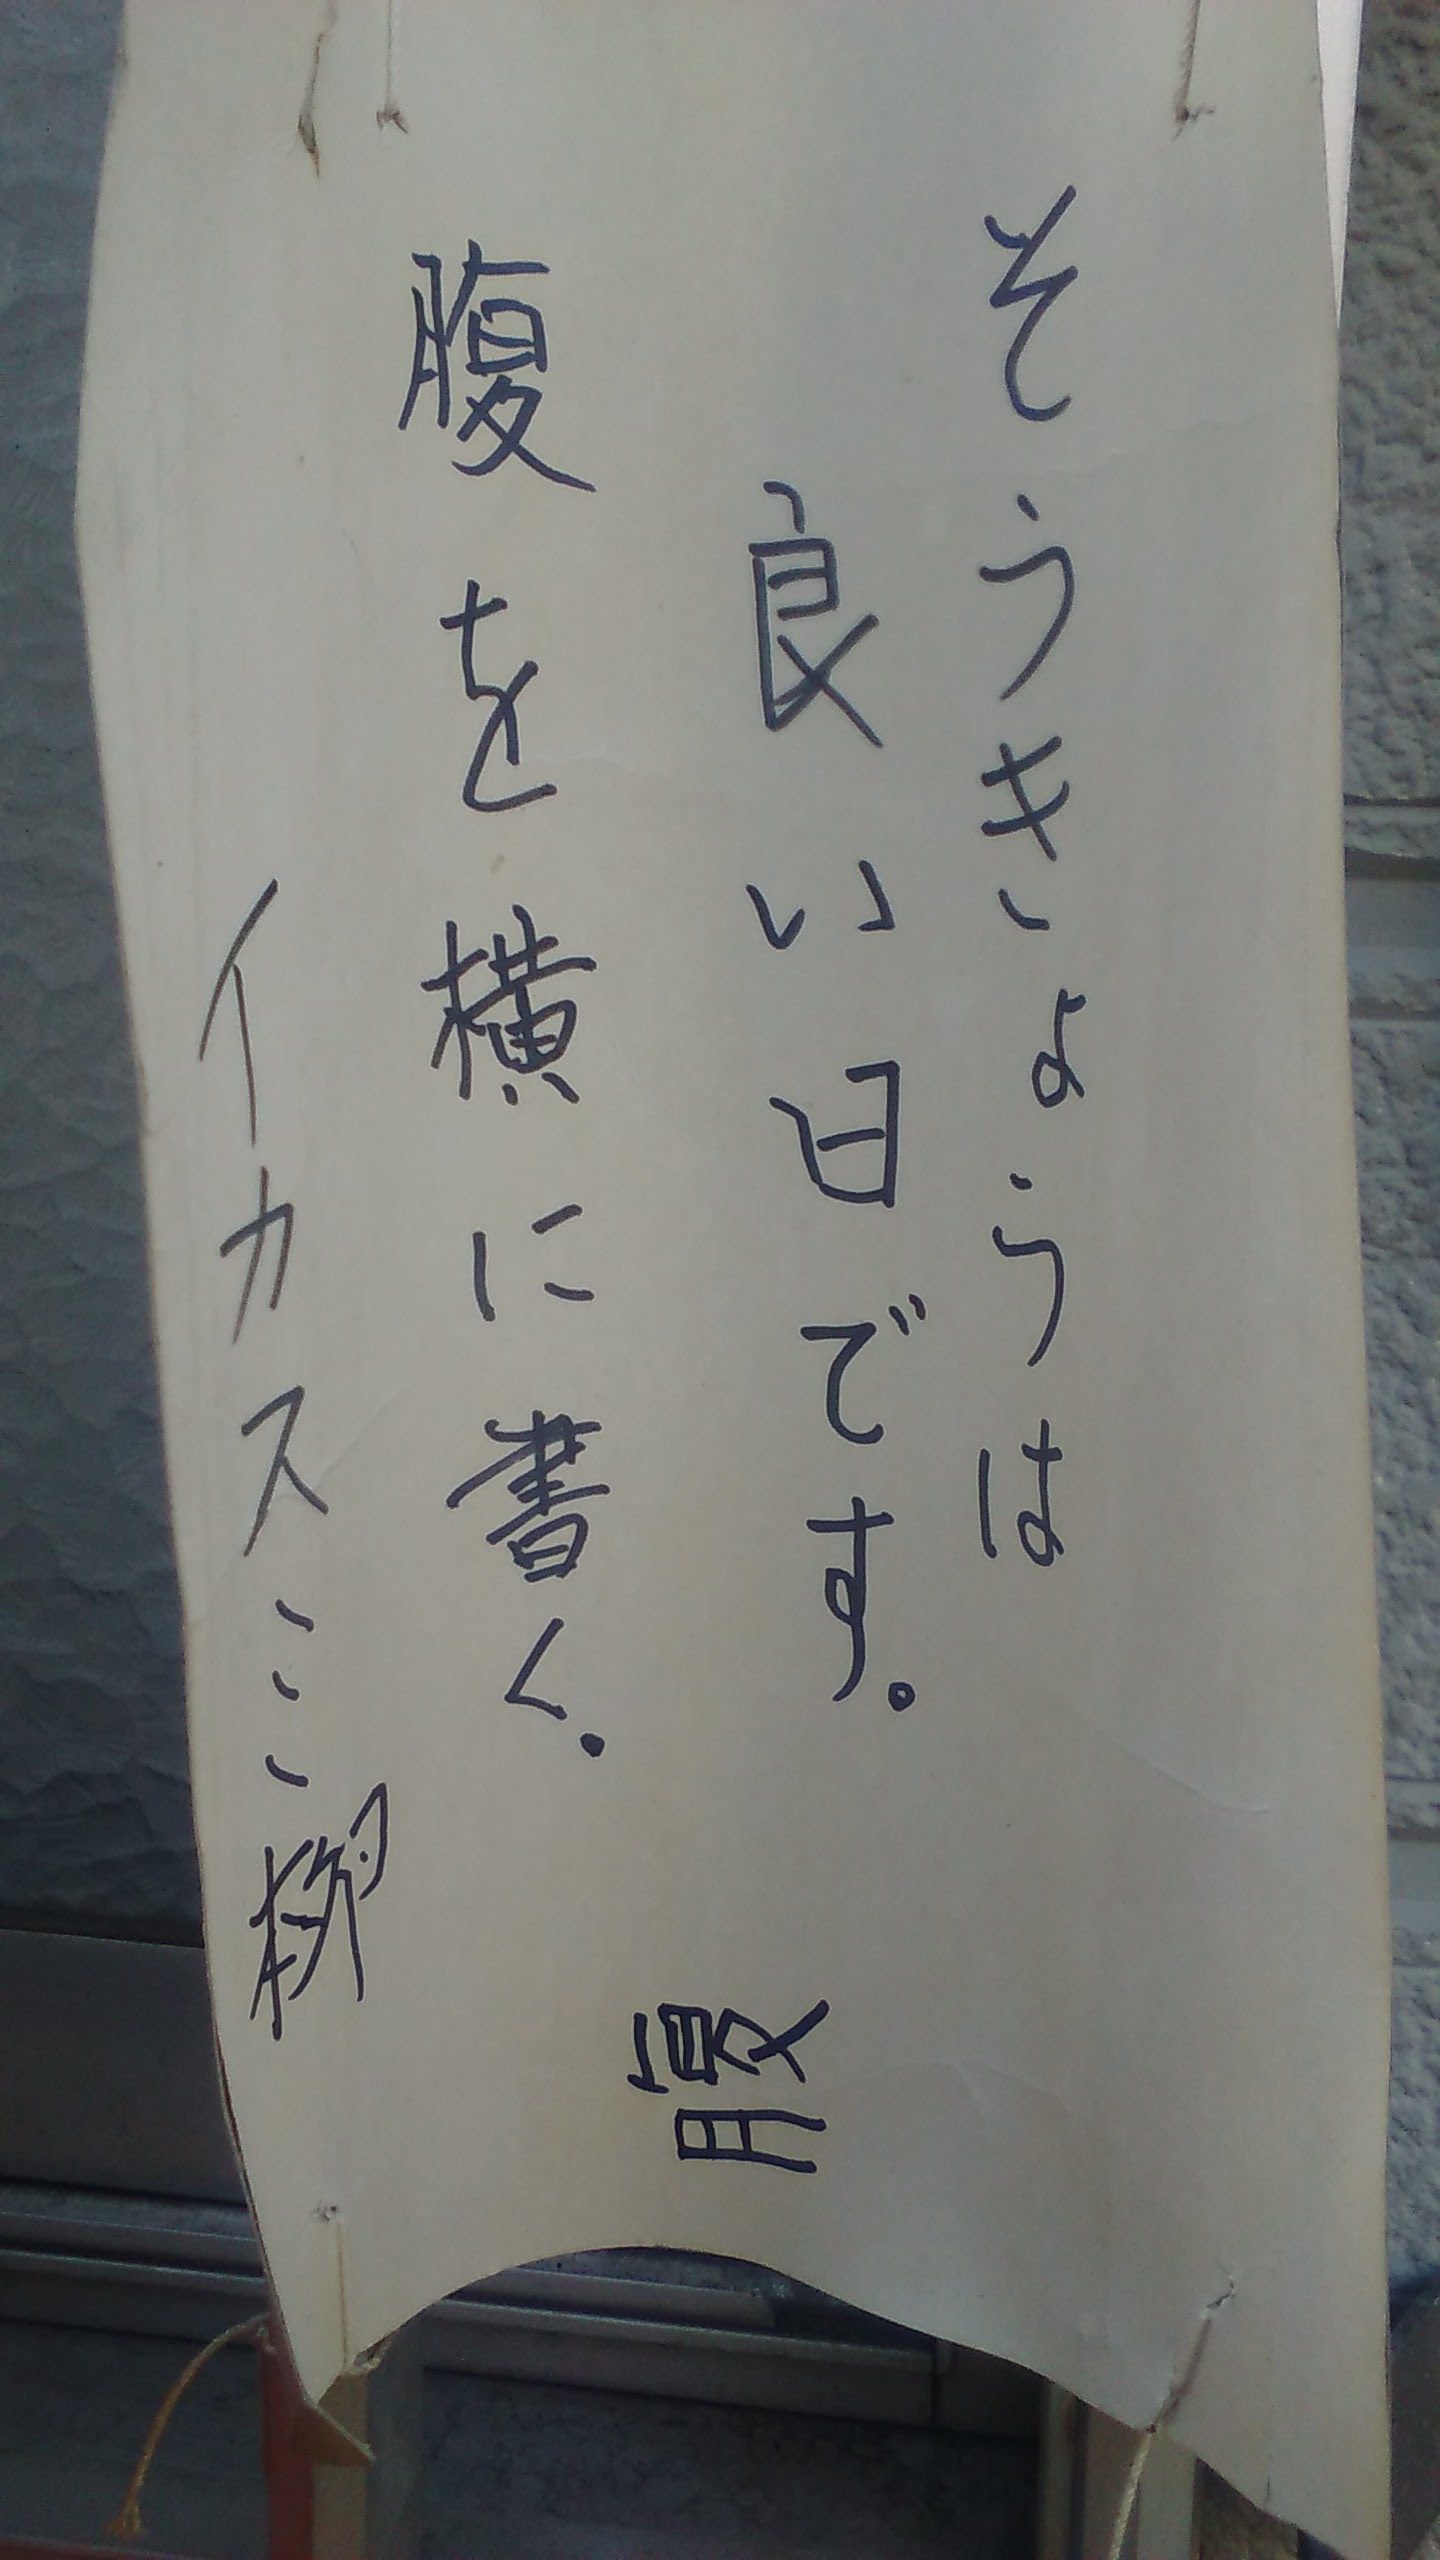 そうきょうは
良い日です。
腹を横に書く.
イカスミ
腹